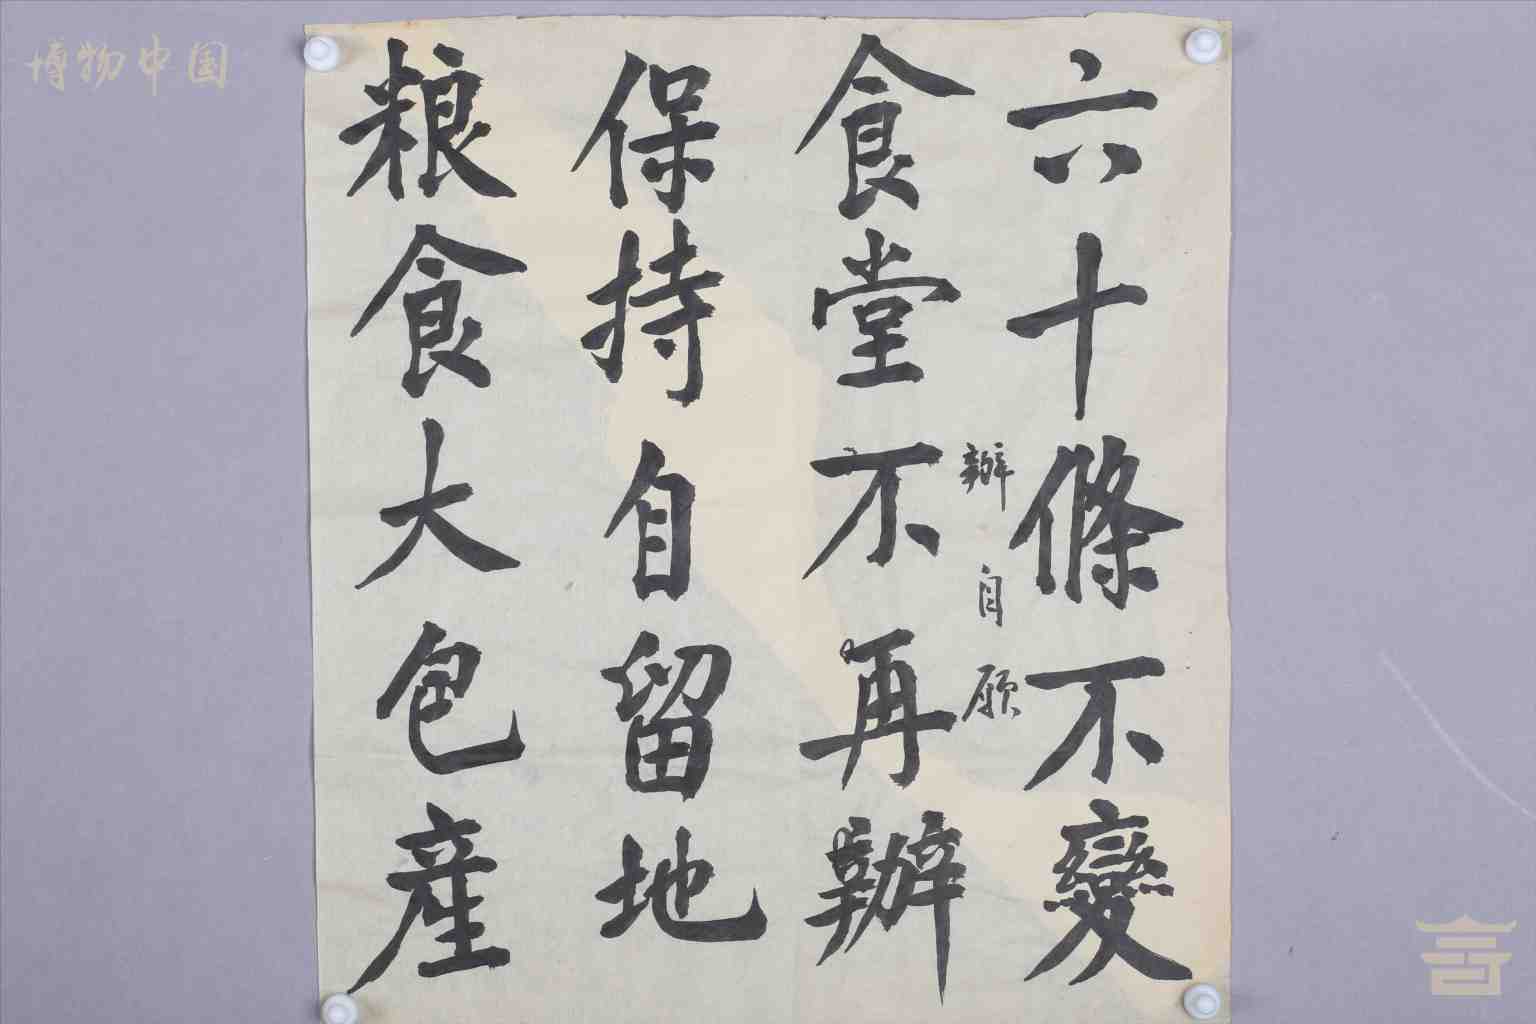 博物中国
六十條不變
辦自願
食堂不再辦
保持自留地
粮食大包産